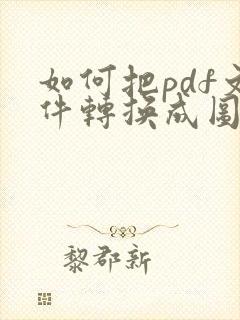 如何把pdf文
件轉換成圖
黎郡新